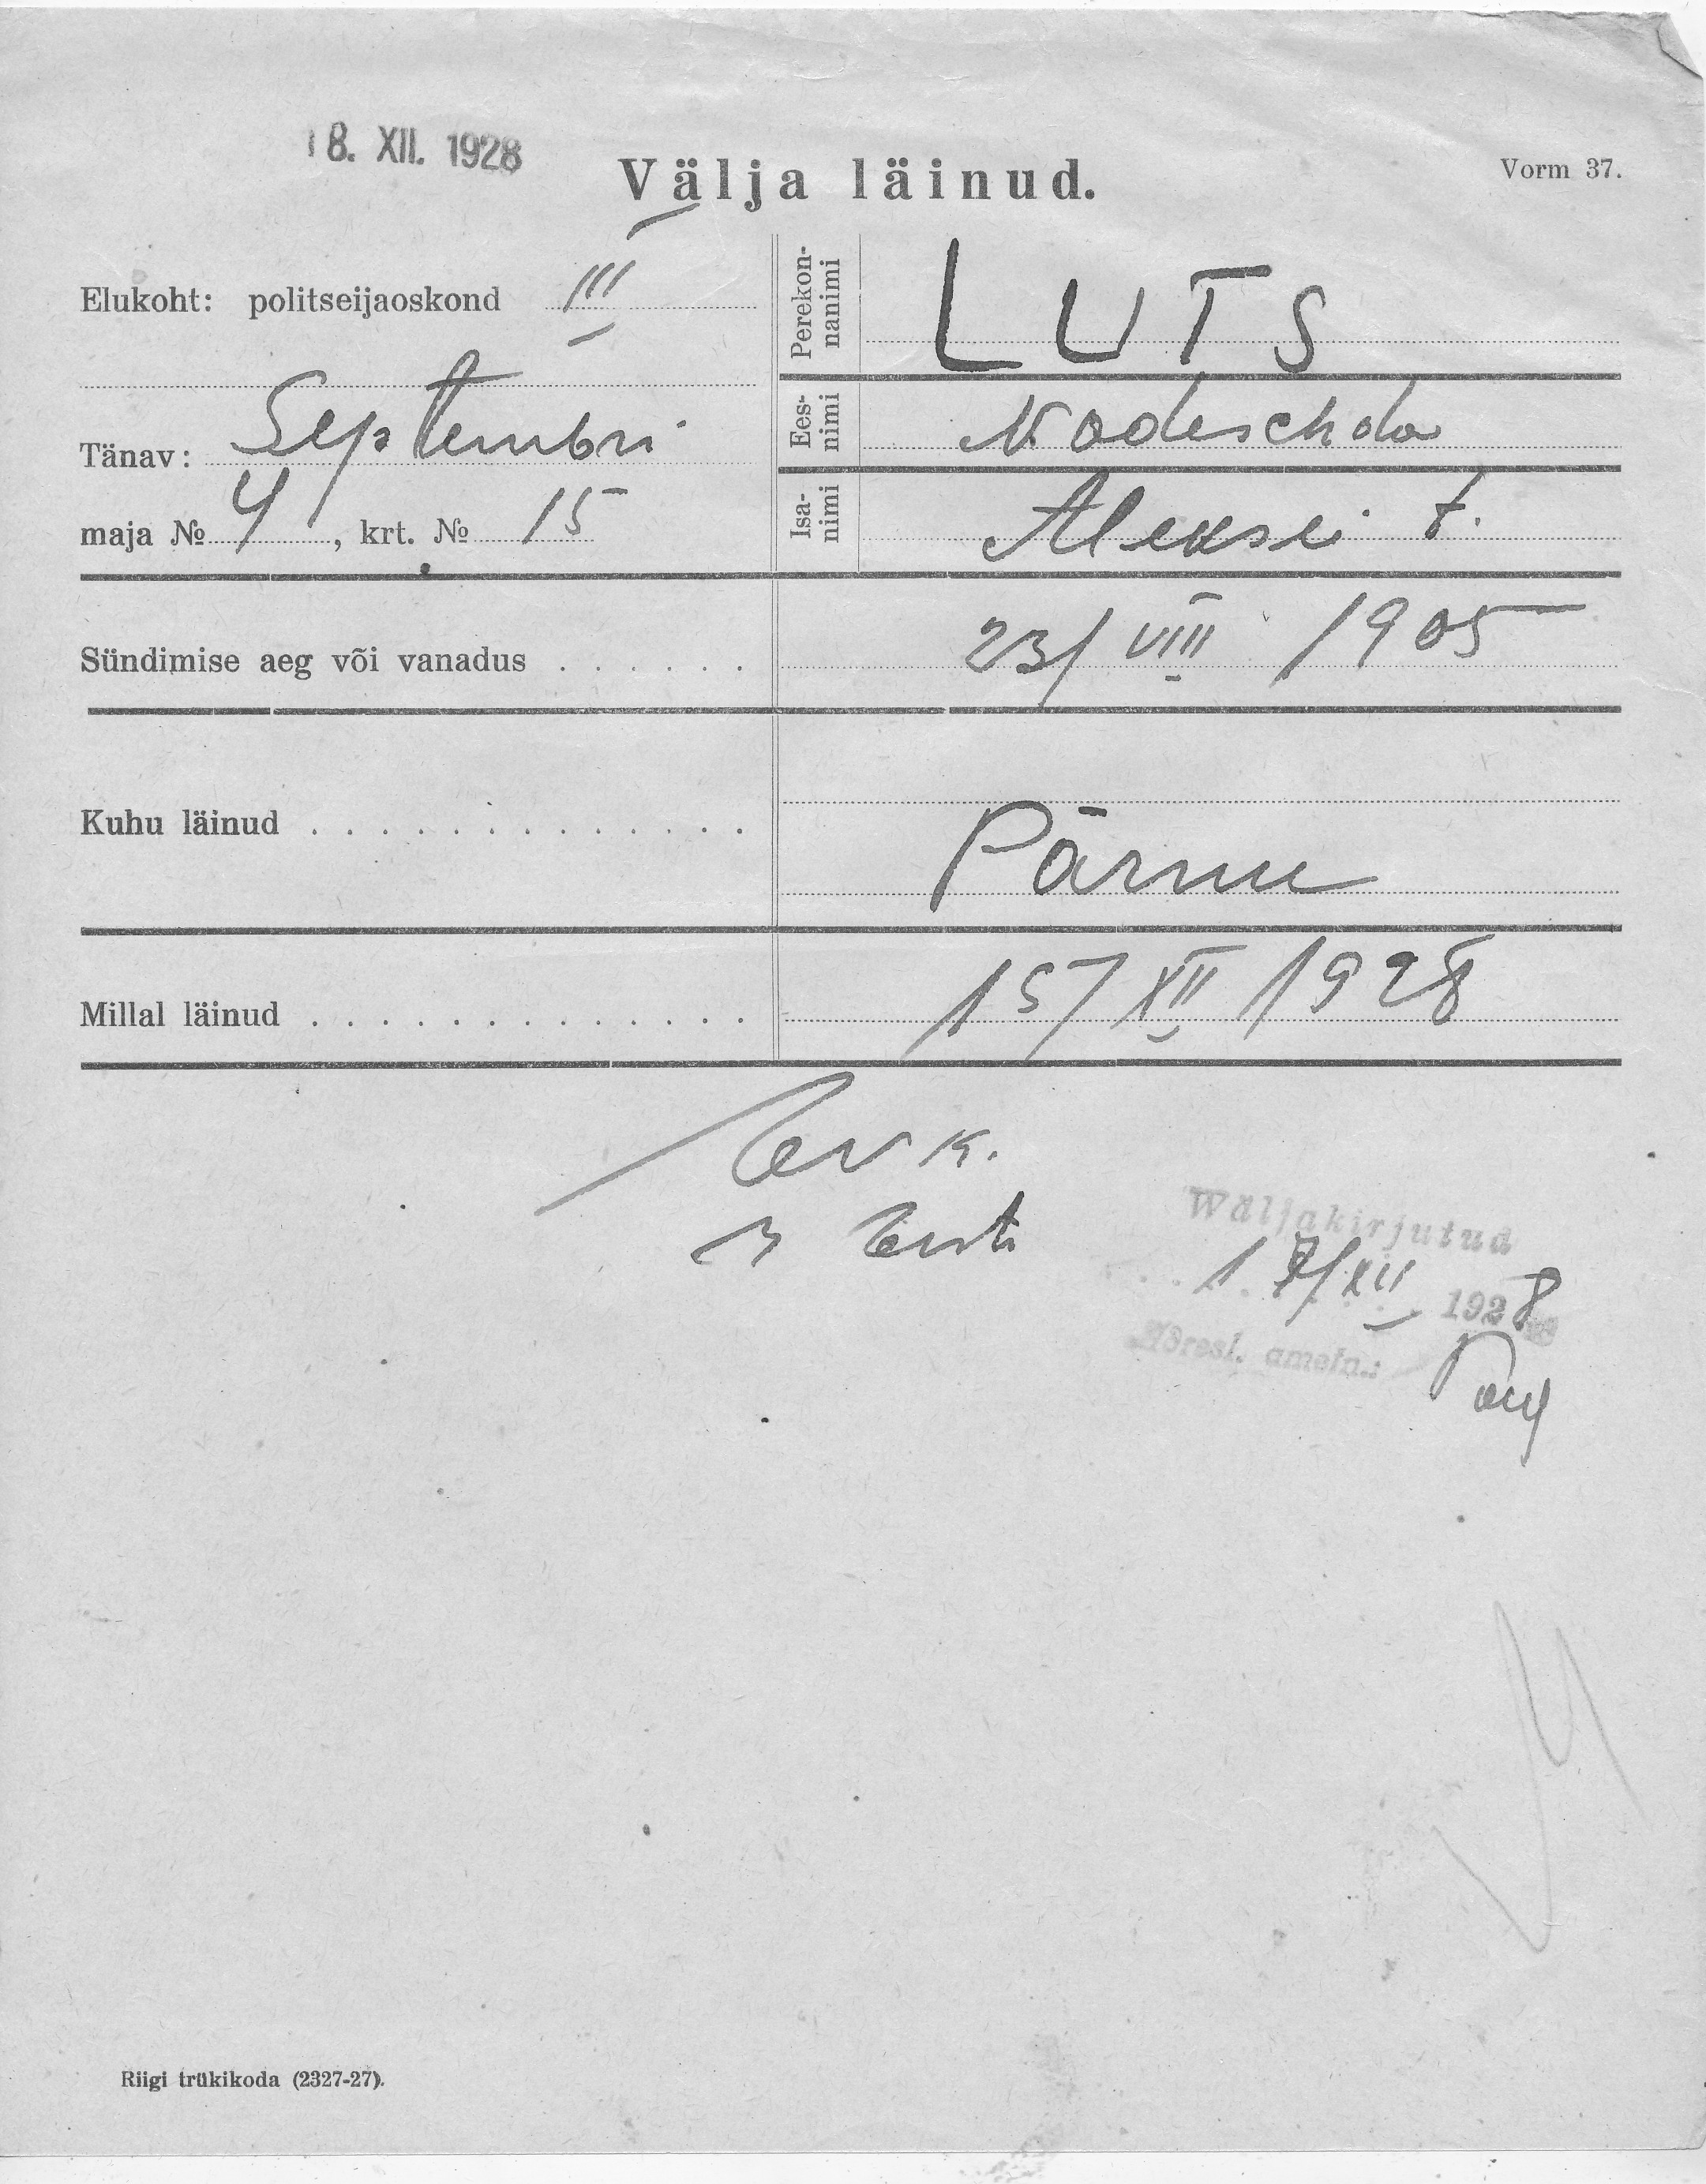 18. XII. 1928
Välja läinud.
Vorm 37.
Elukoht: politseijaoskond III
Tänav: Septembri
maja № 4, krt. № 15
Perekonnanimi LUTS
Eesnimi Nadeschda
Isanimi Aleksei t.
Sündimise aeg või vanadus . . . . . . 23/VIII 1905
Kuhu läinud . . . . . . . . . . . . . Pärnu
Millal läinud . . . . . . . . . . . . . 15/XII 1928
k.
Eesti
Wäljakirjutud
17/XII 1928
ametn.:
Riigi trükikoda (2327-27).